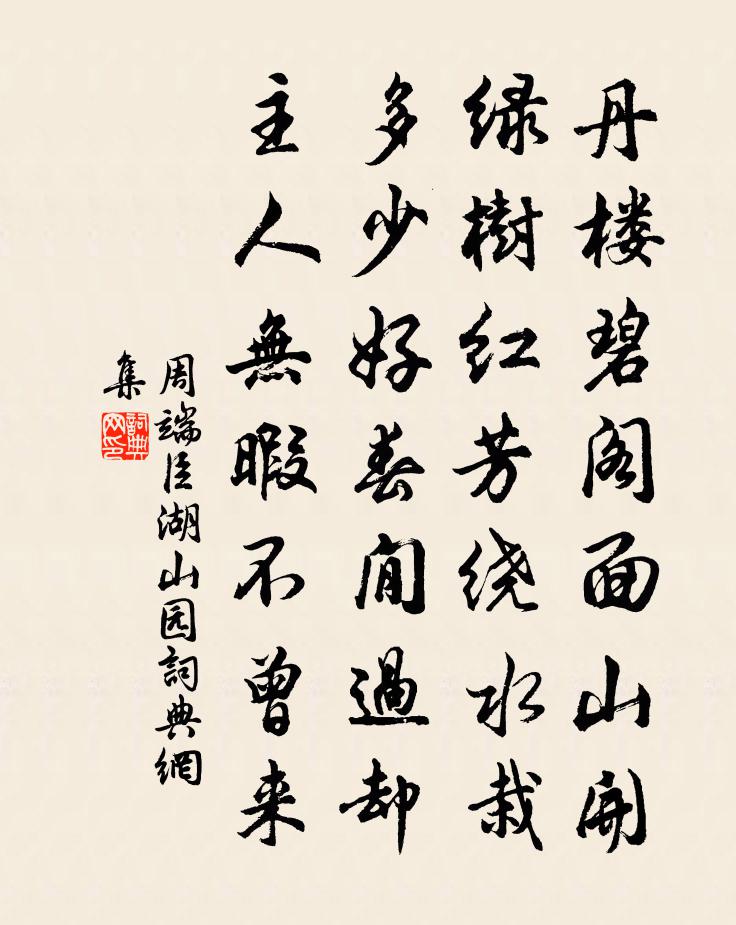 丹楼碧阁面山開
绿樹红芳绕水栽
多少好春閒過却
主人無暇不曾来
周端臣湖山园詞典網
集
詞典网印